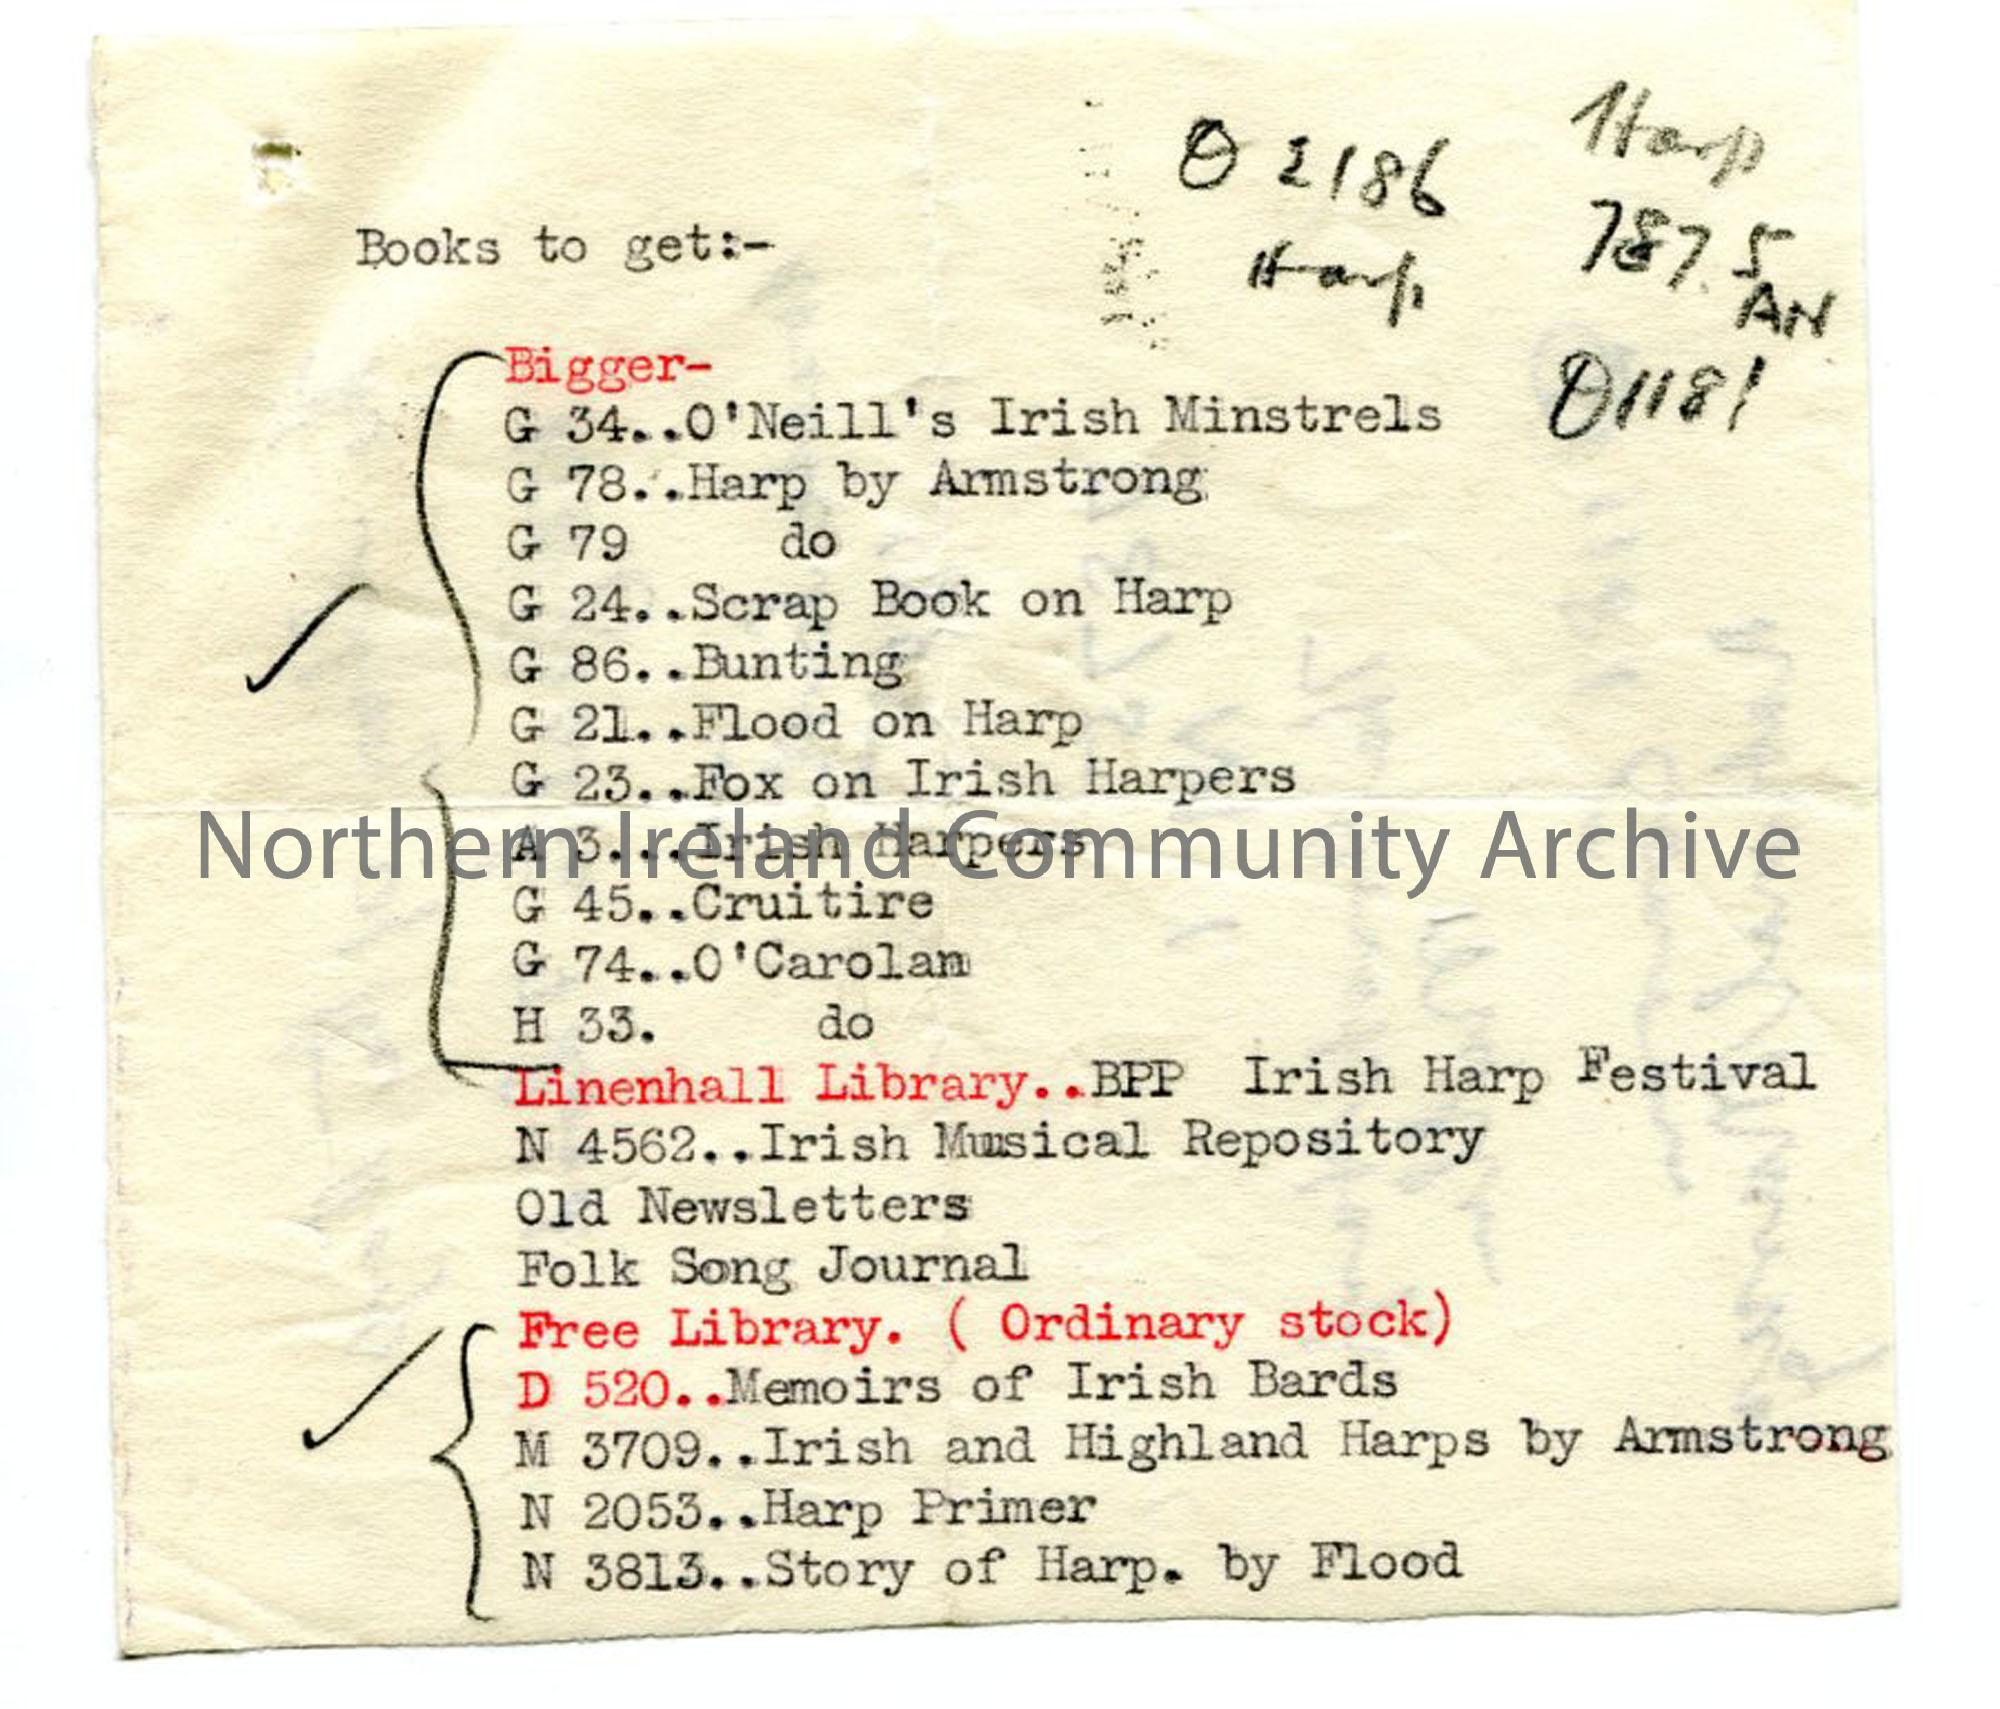 O 2186
Harp
Harp
787.5
AN
O1181
Books to get:-
Bigger-
G 34..O'Neill's Irish Minstrels
G 78..Harp by Armstrong
G 79 do
G 24..Scrap Book on Harp
G 86..Bunting
G 21..Flood on Harp
G 23..Fox on Irish Harpers
A 3....Irish Harpers
G 45..Cruitire
G 74..O'Carolan
H 33. do
Linenhall Library..BPP Irish Harp Festival
N 4562..Irish Musical Repository
Old Newsletters
Folk Song Journal
Free Library. ( Ordinary stock)
D 520..Memoirs of Irish Bards
M 3709..Irish and Highland Harps by Armstrong
N 2053..Harp Primer
N 3813..Story of Harp. by Flood
Northern Ireland Community Archive